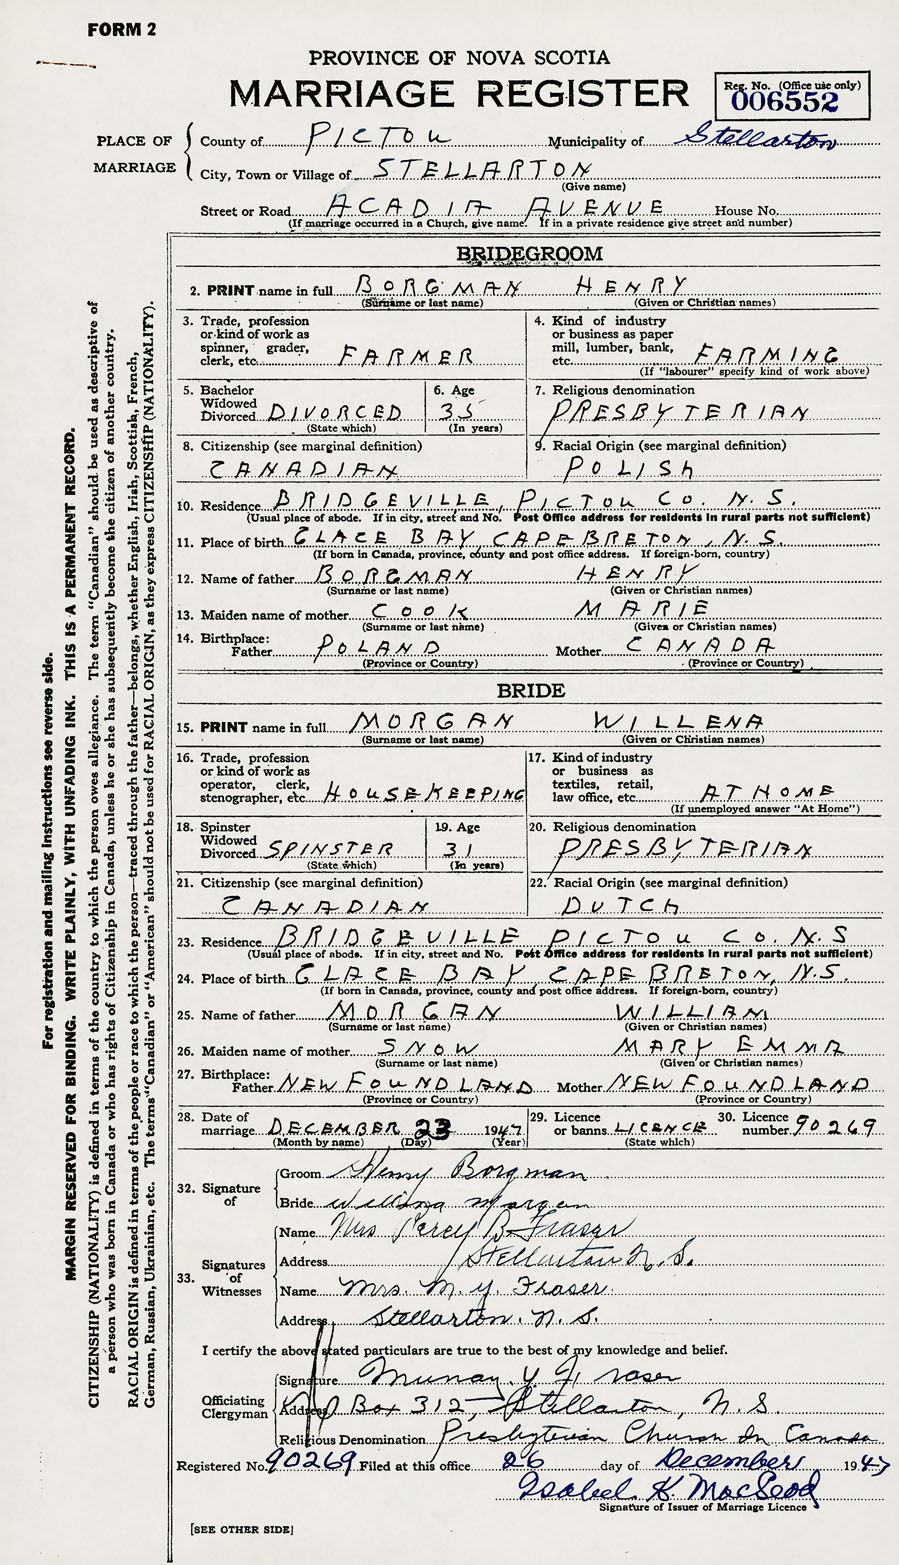 FORM 2
PROVINCE OF NOVA SCOTIA
MARRIAGE REGISTER
Reg. No. (Office use only)
006552
PLACE OF MARRIAGE
County of PICTOU Municipality of Stellarton
City, Town or Village of STELLARTON
(Give name)
Street or Road ACADIA AVENUE House No.
(If marriage occurred in a Church, give name. If in a private residence give street and number)
BRIDEGROOM
2. PRINT name in full BORGMAN HENRY
(Surname or last name) (Given or Christian names)
3. Trade, profession or kind of work as spinner, grader, clerk, etc. FARMER
4. Kind of industry or business as paper mill, lumber, bank, etc. FARMING
(If "labourer" specify kind of work above)
5. Bachelor Widowed Divorced DIVORCED
(State which)
6. Age 35
(In years)
7. Religious denomination
PRESBYTERIAN
8. Citizenship (see marginal definition)
CANADIAN
9. Racial Origin (see marginal definition)
POLISH
10. Residence BRIDGEVILLE, PICTOU CO. N.S.
(Usual place of abode. If in city, street and No. Post Office address for residents in rural parts not sufficient)
11. Place of birth GLACE BAY CAPE BRETON, N.S.
(If born in Canada, province, county and post office address. If foreign-born, country)
12. Name of father BORGMAN HENRY
(Surname or last name) (Given or Christian names)
13. Maiden name of mother COOK MARIE
(Surname or last name) (Given or Christian names)
14. Birthplace:
Father POLAND Mother CANADA
(Province or Country) (Province or Country)
BRIDE
15. PRINT name in full MORGAN WILLENA
(Surname or last name) (Given or Christian names)
16. Trade, profession or kind of work as operator, clerk, stenographer, etc. HOUSEKEEPING
17. Kind of industry or business as textiles, retail, law office, etc. AT HOME
(If unemployed answer "At Home")
18. Spinster Widowed Divorced SPINSTER
(State which)
19. Age 31
(In years)
20. Religious denomination
PRESBYTERIAN
21. Citizenship (see marginal definition)
CANADIAN
22. Racial Origin (see marginal definition)
DUTCH
23. Residence BRIDGEVILLE PICTOU CO. N.S
(Usual place of abode. If in city, street and No. Post Office address for residents in rural parts not sufficient)
24. Place of birth GLACE BAY CAPE BRETON, N.S.
(If born in Canada, province, county and post office address. If foreign-born, country)
25. Name of father MORGAN WILLIAM
(Surname or last name) (Given or Christian names)
26. Maiden name of mother SNOW MARY EMMA
(Surname or last name) (Given or Christian names)
27. Birthplace:
Father NEWFOUNDLAND Mother NEWFOUNDLAND
(Province or Country) (Province or Country)
28. Date of marriage DECEMBER 23 1947
(Month by name) (Day) (Year)
29. Licence or banns LICENCE
(State which)
30. Licence number 90269
32. Signature of
Groom Henry Borgman
Bride Willena Morgan
33. Signatures of Witnesses
Name Mrs Percy B Fraser
Address Stellarton N.S.
Name Mrs. M. Y. Fraser
Address Stellarton. N.S.
I certify the above stated particulars are true to the best of my knowledge and belief.
Officiating Clergyman
Signature Murray Y. Fraser
Address P O Box 312, Stellarton, N.S.
Religious Denomination Presbyterian Church In Canada
Registered No. 90269 Filed at this office 26 day of December 1947
Isabel K. MacLeod
Signature of Issuer of Marriage Licence
[SEE OTHER SIDE]
For registration and mailing instructions see reverse side.
MARGIN RESERVED FOR BINDING. WRITE PLAINLY, WITH UNFADING INK. THIS IS A PERMANENT RECORD.
CITIZENSHIP (NATIONALITY) is defined in terms of the country to which the person owes allegiance. The term "Canadian" should be used as descriptive of
a person who was born in Canada or who has rights of Citizenship in Canada, unless he or she has subsequently become the citizen of another country.
RACIAL ORIGIN is defined in terms of the people or race to which the person—traced through the father—belongs, whether English, Irish, Scottish, French,
German, Russian, Ukrainian, etc. The terms "Canadian" or "American" should not be used for RACIAL ORIGIN, as they express CITIZENSHIP (NATIONALITY).